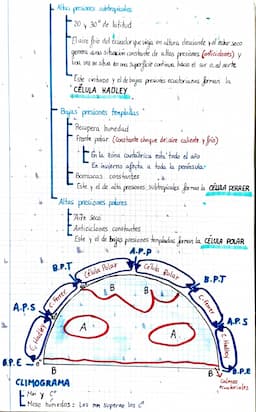 Altas presiones subtropicales
20 y 30° de latitud
El aire frío del ecuador que viaja en altura desciende y el aire seco
genera una situación constante de altas presiones (anticiclones) y
una vez se situa en una superficie continua hacia el sur o al norte
Este cinturón y el de bajas presiones ecuatoriales forman la
CÉLULA HADLEY
Bajas presiones templadas
Recupera humedad
Frente polar (constante choque de aire caliente y frío)
En la zona cantábrica está todo el año
En invierno afecta a toda la península
Borrascas constantes
Este y el de altas presiones subtropicales forman la CÉLULA FERRER
Altas presiones polares
Aire seco
Anticiclones constantes
Este y el de bajas presiones templadas forman la CÉLULA POLAR
A.P.P
B.P.T
Célula Polar
Célula Polar
B.P.T
B
B
C. Ferrer
C. Ferrer
A.P.S
A
A
A.P.S
C. Hadley
C. Hadley
B.P.E
0°
B.P.E
B
B
Calmas
ecuatoriales
CLIMOGRAMA
Mm y C°
Meses húmedos = Los mm superan los C°